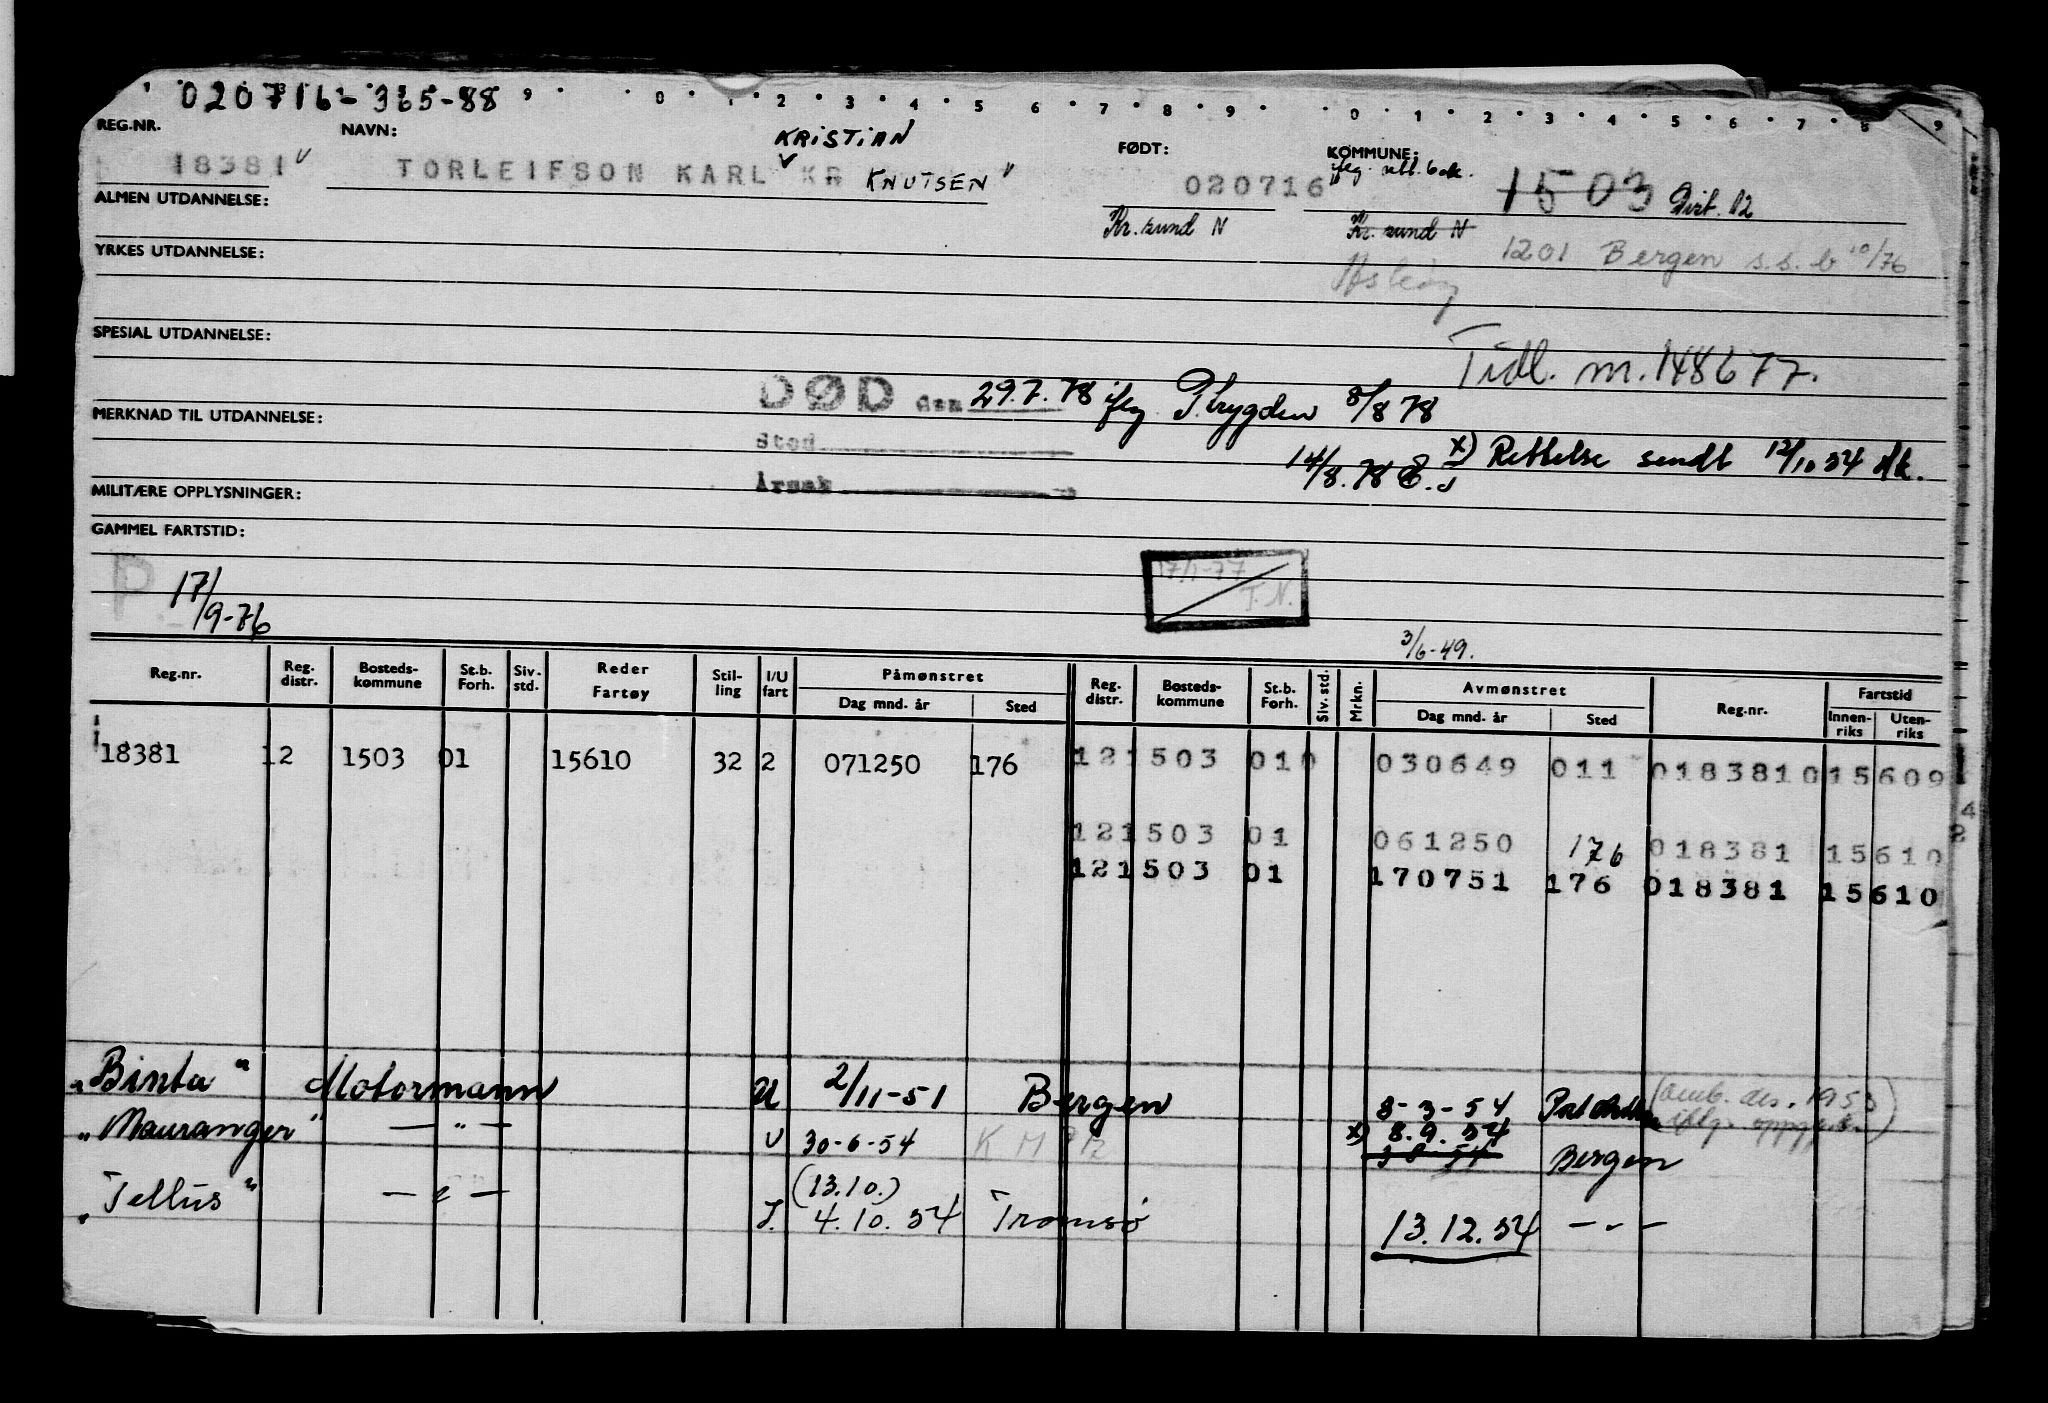 020716-365-88
0 1 2 3 4 5 6 7 8 9 0 1 2 3 4 5 6 7 8 9
REG.NR. NAVN: KRISTIAN FØDT: KOMMUNE:
18381 TORLEIFSON KARL KR KNUTSEN 020716 1503 Dist. 12
ALMEN UTDANNELSE: Kr.sund N Kr. sund N
YRKES UTDANNELSE: 1201 Bergen s.s.b 10/76
SPESIAL UTDANNELSE: Tidl. m. 148677.
DØD den 29.7.78 iflg T.trygden 8/8 78
MERKNAD TIL UTDANNELSE:
Sted
14/8.78 x) Rettelse sendt 12/10 54
Årsak
MILITÆRE OPPLYSNINGER:
GAMMEL FARTSTID:
P. 17/9-76
17/1-77 T.N.
3/6-49.
Reg.nr. Reg. distr. Bosteds-kommune St.b. Forh. Siv. std. Reder Fartøy Stil-ling I/U fart Påmønstret Dag mnd. år Sted Reg. distr. Bosteds-kommune St.b. Forh. Siv. std. Mrkn. Avmønstret Dag mnd. år Sted Reg.nr. Fartstid Innen-riks Uten-riks
18381 12 1503 01 15610 32 2 071250 176 121503 010 030649 011 018381015609
121503 01 061250 176 018381 15610
121503 01 170751 176 018381 15610
"Binta" Motormann U 2/11-51 Bergen 8-3-54 (omb. des. 1953
"Mauranger" — " — U 30-6-54 x) 8.9.54 iflg.
3 8 54 Bergen
(13.10.)
"Tellus" — " — I. 4.10.54 Tromsø 13.12.54 — " —